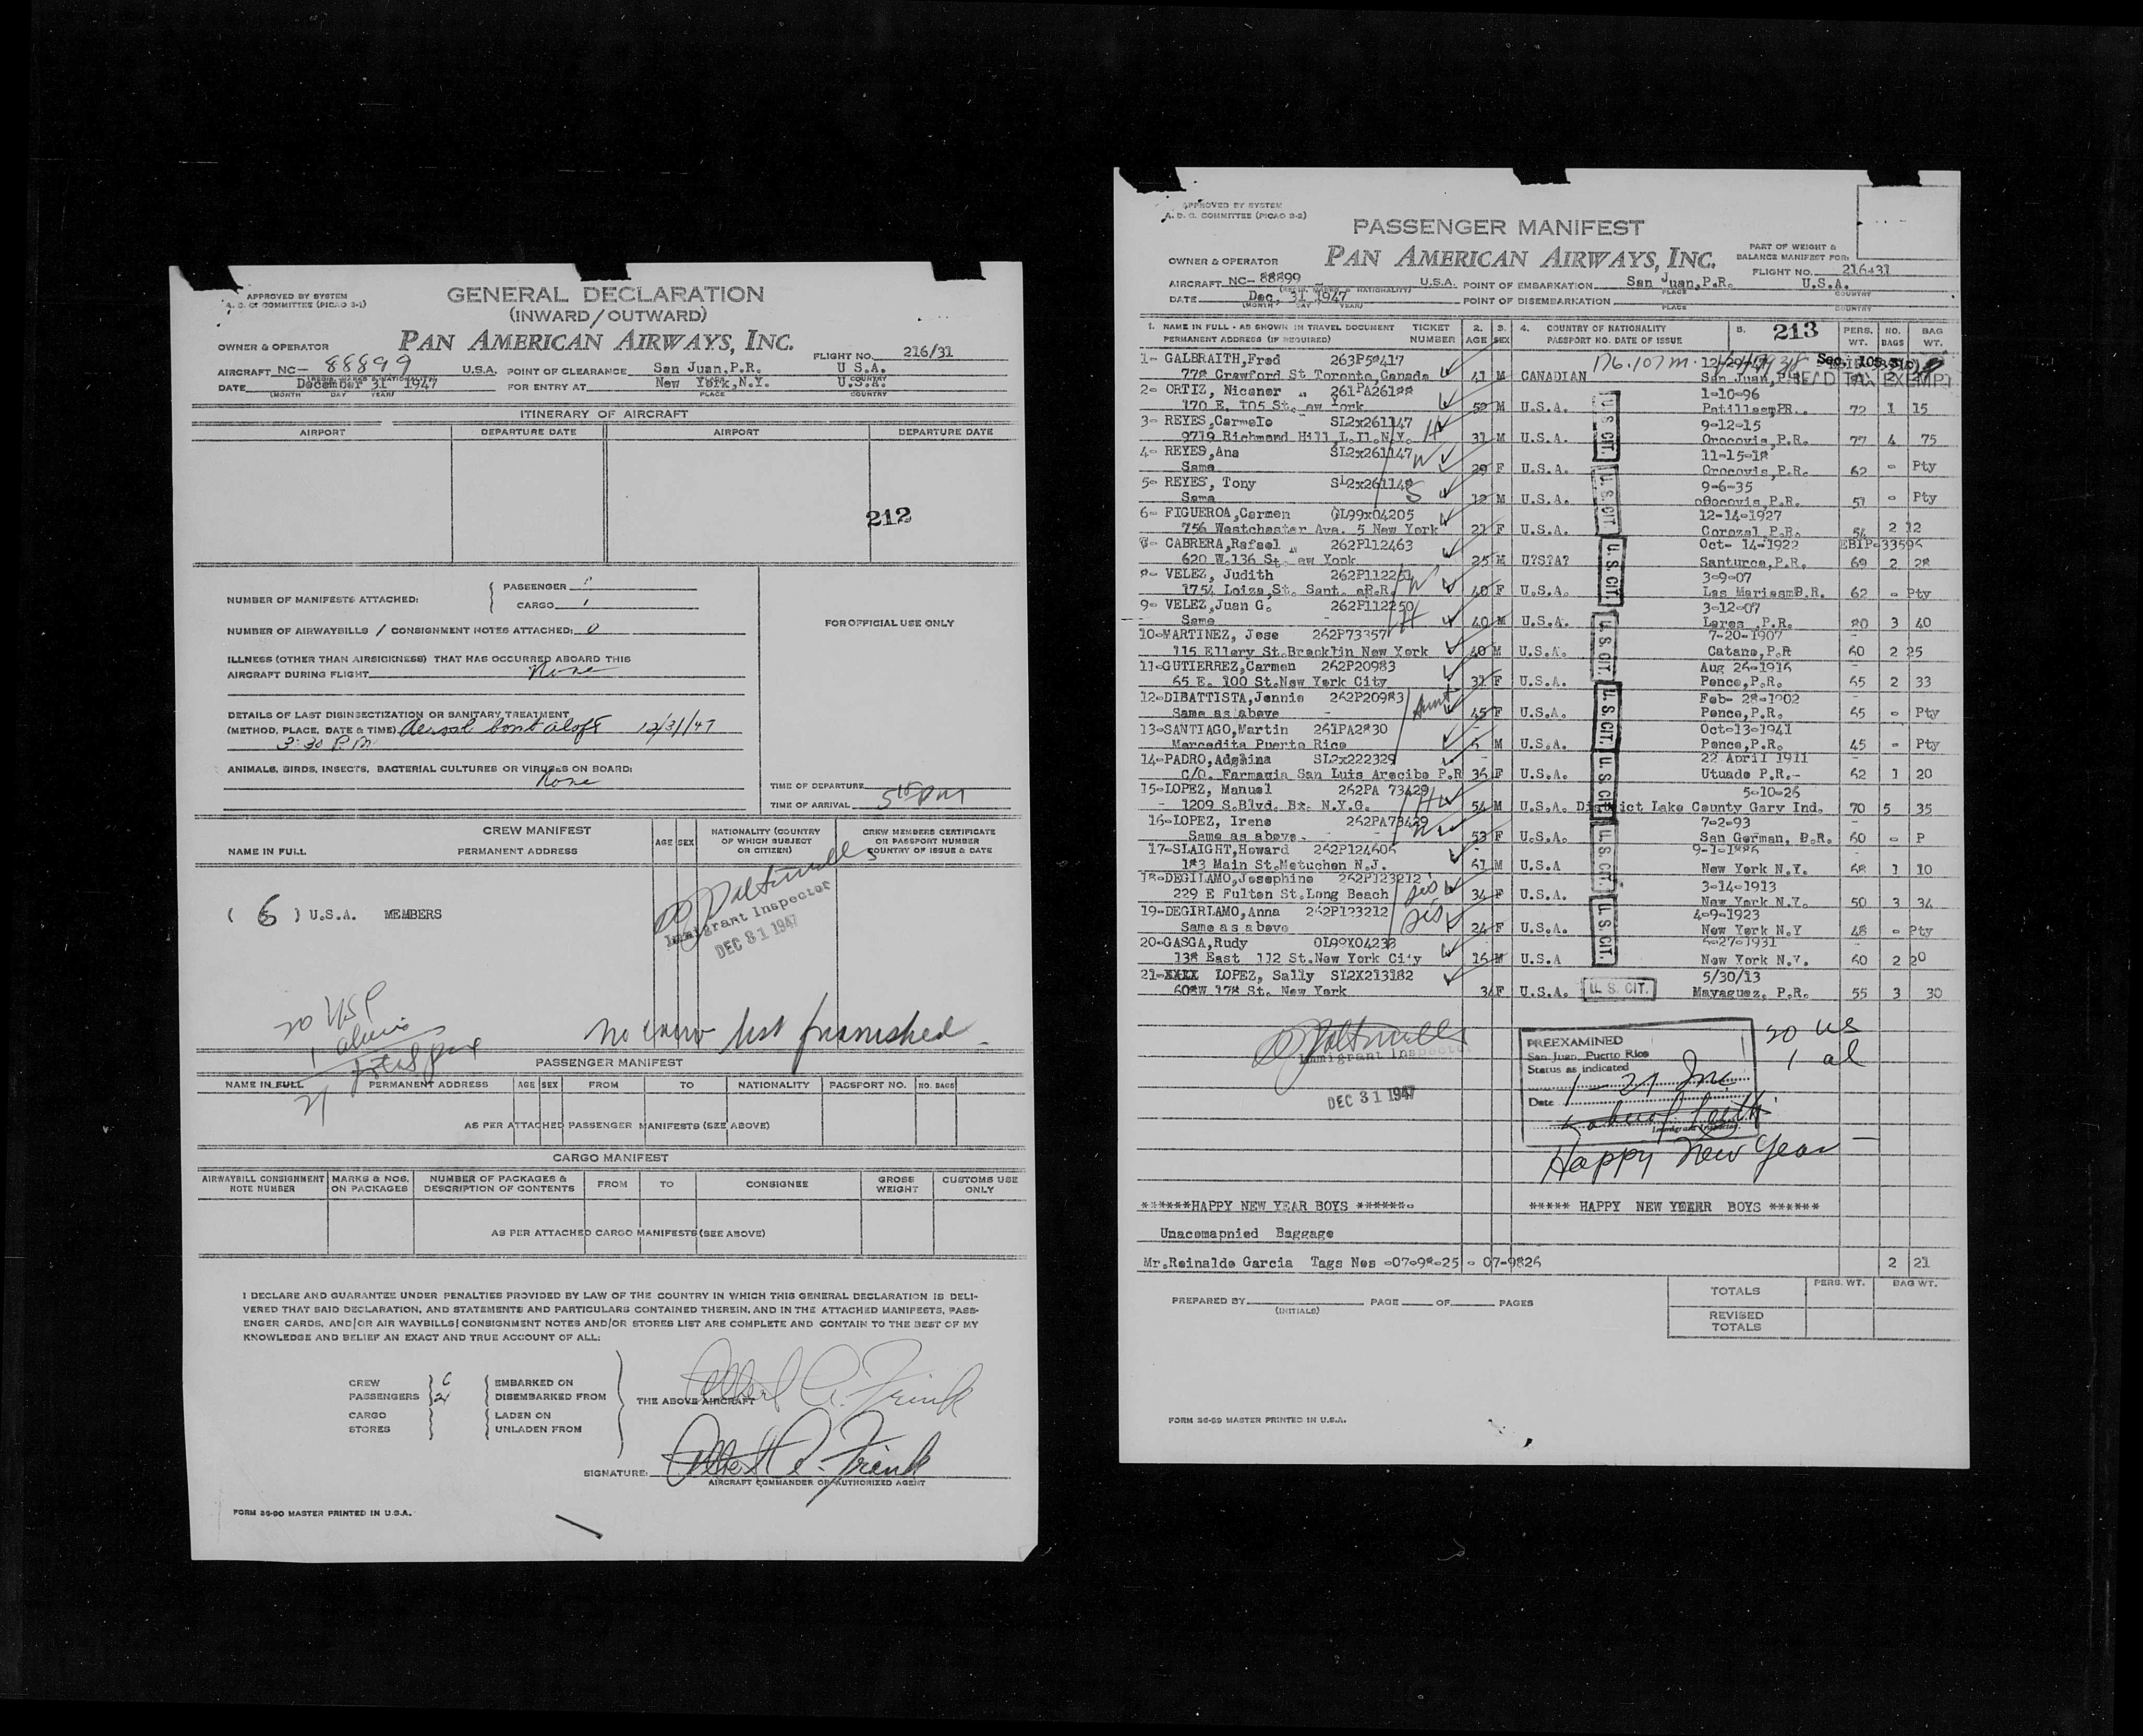 APPROVED BY SYSTEM
A. D. C. COMMITTEE (PICAO 3-1)
GENERAL DECLARATION
(INWARD/OUTWARD)
PAN AMERICAN AIRWAYS, INC.
OWNER & OPERATOR
FLIGHT NO. 216/31
AIRCRAFT NC- 88899 U.S.A. POINT OF CLEARANCE San Juan,P.R. U S.A.
(REGIS. MARKS & NATIONALITY) PLACE COUNTRY
DATE December 31 1947 FOR ENTRY AT New York,N.Y. U.S.A.
(MONTH DAY YEAR) PLACE COUNTRY
ITINERARY OF AIRCRAFT
AIRPORT DEPARTURE DATE AIRPORT DEPARTURE DATE
212
NUMBER OF MANIFESTS ATTACHED: PASSENGER 1
CARGO 1
NUMBER OF AIRWAYBILLS / CONSIGNMENT NOTES ATTACHED: 0
FOR OFFICIAL USE ONLY
ILLNESS (OTHER THAN AIRSICKNESS) THAT HAS OCCURRED ABOARD THIS
AIRCRAFT DURING FLIGHT None
DETAILS OF LAST DISINSECTIZATION OR SANITARY TREATMENT
(METHOD, PLACE, DATE & TIME) Aerosol bomb aloft 12/31/47
3:30 P.M.
ANIMALS, BIRDS, INSECTS, BACTERIAL CULTURES OR VIRUSES ON BOARD:
None
TIME OF DEPARTURE
TIME OF ARRIVAL 5 15 PM
CREW MANIFEST
NAME IN FULL PERMANENT ADDRESS AGE SEX NATIONALITY (COUNTRY OF WHICH SUBJECT OR CITIZEN) CREW MEMBERS CERTIFICATE OR PASSPORT NUMBER COUNTRY OF ISSUE & DATE
( 6 ) U.S.A. MEMBERS
Immigrant Inspector
DEC 31 1947
20 USP
1 alien
21 total pax
No crew list furnished
PASSENGER MANIFEST
NAME IN FULL PERMANENT ADDRESS AGE SEX FROM TO NATIONALITY PASSPORT NO. NO. BAGS
AS PER ATTACHED PASSENGER MANIFESTS (SEE ABOVE)
CARGO MANIFEST
AIRWAYBILL CONSIGNMENT NOTE NUMBER MARKS & NOS. ON PACKAGES NUMBER OF PACKAGES & DESCRIPTION OF CONTENTS FROM TO CONSIGNEE GROSS WEIGHT CUSTOMS USE ONLY
AS PER ATTACHED CARGO MANIFESTS (SEE ABOVE)
I DECLARE AND GUARANTEE UNDER PENALTIES PROVIDED BY LAW OF THE COUNTRY IN WHICH THIS GENERAL DECLARATION IS DELI-
VERED THAT SAID DECLARATION, AND STATEMENTS AND PARTICULARS CONTAINED THEREIN, AND IN THE ATTACHED MANIFESTS, PASS-
ENGER CARDS, AND/OR AIR WAYBILLS/CONSIGNMENT NOTES AND/OR STORES LIST ARE COMPLETE AND CONTAIN TO THE BEST OF MY
KNOWLEDGE AND BELIEF AN EXACT AND TRUE ACCOUNT OF ALL:
CREW 6 EMBARKED ON
PASSENGERS 21 DISEMBARKED FROM
THE ABOVE AIRCRAFT
CARGO LADEN ON
STORES UNLADEN FROM
Albert A. Frink
SIGNATURE: Albert A. Frink
AIRCRAFT COMMANDER OR AUTHORIZED AGENT
FORM 36-90 MASTER PRINTED IN U.S.A.
APPROVED BY SYSTEM
A. D. C. COMMITTEE (PICAO 3-2)
PASSENGER MANIFEST
PAN AMERICAN AIRWAYS, INC.
PART OF WEIGHT &
BALANCE MANIFEST FOR:
OWNER & OPERATOR
FLIGHT NO. 216-31
AIRCRAFT NC- 88899 U.S.A. POINT OF EMBARKATION San Juan,P.R. U.S.A.
(REGIS. MARKS & NATIONALITY) PLACE COUNTRY
DATE Dec, 31 1947 POINT OF DISEMBARKATION
(MONTH DAY YEAR) PLACE COUNTRY
1. NAME IN FULL - AS SHOWN IN TRAVEL DOCUMENT TICKET NUMBER 2. AGE 3. SEX 4. COUNTRY OF NATIONALITY 5. 213 PERS. WT. NO. BAGS BAG WT.
PERMANENT ADDRESS (IF REQUIRED) PASSPORT NO. DATE OF ISSUE
1- GALBRAITH,Fred 263P58417 176.107m Sec. 105.3
778 Crawford St Toronto,Canada 41 M CANADIAN San Juan,P.R. HEAD TAX EXEMPT
2- ORTIZ, Nicanor 261PA26188 1-10-96
170 E. 105 St. ew York 52 M U.S.A. PatillasmPR. 72 1 15
3- REYES,Carmelo SL2x261147 H 9-12-15
9719 Richmond Hill L.Il.N.Y. 31 M U.S.A. Orocovis,P.R. 77 4 75
4- REYES,Ana SL2x261147 W 11-15-18
Same 29 F U.S.A. Orocovis,P.R. 62 - Pty
5- REYES, Tony SL2x261148 S 9-6-35
Same 12 M U.S.A. oOocovis,P.R. 51 - Pty
6- FIGUEROA,Carmen OL99x04205 12-14-1927
756 Westchester Ava. 5 New York 21 F U.S.A. Corozal,P.R. 54 2 12
7- CABRERA,Rafael 262P112463 Oct- 14-1922 EBIP-33596
620 W.136 St. ew York 25 M U?S?A? Santurce,P.R. 69 2 28
8- VELEZ, Judith 262P112251 W 3-9-07
1754 Loiza,St. Sant. aP.R. 40 F U.S.A. Las MariasmB.R. 62 - Pty
9- VELEZ,Juan G. 262P112250 H 3-12-07
Same 40 M U.S.A. Lares ,P.R. 80 3 40
10-MARTINEZ, Jose 262P73357 7-20-1907
115 Ellery St.Brocklin New York 40 M U.S.A. Catano,P.R 60 2 25
11-GUTIERREZ,Carmen 262P20983 Aug 26-1916
65 E. 100 St.New York City 31 F U.S.A. Ponce,P.R. 65 2 33
12-DIBATTISTA,Jennie 262P20983 Aunt Feb- 28-1902
Same as above 45 F U.S.A. Ponce,P.R. 65 - Pty
13-SANTIAGO,Martin 261PA2830 Oct-13-1941
Mercedita Puerto Rico 5 M U.S.A. Ponce,P.R. 45 - Pty
14-PADRO,Adghina SL2x222329 22 April 1911
C/O. Farmacia San Luis Arecibo P.R 36 F U.S.A. Utuado P.R.- 62 1 20
15-LOPEZ, Manuel 262PA 73429 H 5-10-26
- 1209 S.Blvd. Bx. N.Y.G. 54 M U.S.A. District Lake County Gary Ind. 70 5 35
16-LOPEZ, Irene 262PA73429 W 7-2-93
Same as above. 53 F U.S.A. San German, B.R. 60 - P
17-SLAIGHT,Howard 262P124606 9-1-1886
183 Main St.Metuchen N.J. 61 M U.S.A New York N.Y. 68 1 10
18-DEGILAMO,Josephine 262P123212 sis 3-14-1913
229 E Fulton St.Long Beach 34 F U.S.A. New York N.Y. 50 3 34
19-DEGIRLAMO,Anna 262P123212 sis 4-9-1923
Same as above 24 F U.S.A. New York N.Y 48 - Pty
20-GASGA,Rudy OL99X04238 6-27-1931
138 East 112 St.New York City 16 M U.S.A New York N.Y. 60 2 20
21-XXXX LOPEZ, Sally SL2X213182 5/30/13
608W 178 St. New York 34 F U.S.A. U. S. CIT. Mayaguez, P.R. 55 3 30
U. S. CIT.
U. S. CIT
U. S. CIT.
U. S. CIT.
U. S. CIT.
U S. CIT
U. S. CIT.
U. S. CIT.
Immigrant Inspector
DEC 31 1947
PREEXAMINED
San Juan, Puerto Rico
Status as indicated
1 - 21 Inc
Date
Immigrant Inspector
20 us
1 al
Happy New Year
******HAPPY NEW YEAR BOYS ******- ***** HAPPY NEW YDERR BOYS ******
Unacomapnied Baggage
Mr.Reinaldo Garcia Tags Nos -07-98-25 - 07-9826 2 21
PREPARED BY PAGE OF PAGES
(INITIALS)
PERS. WT. BAG WT.
TOTALS
REVISED TOTALS
FORM 36-89 MASTER PRINTED IN U.S.A.